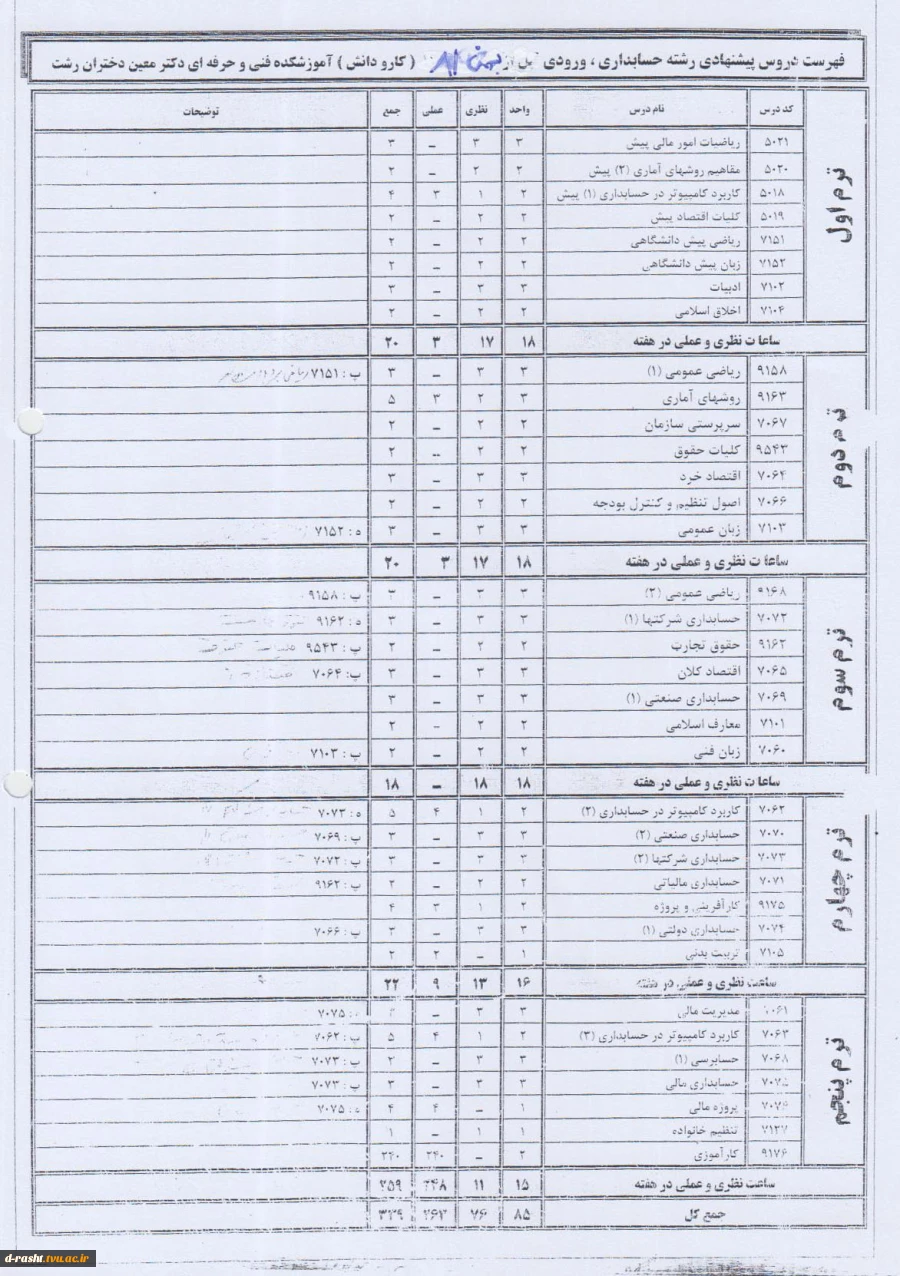 فهرست دروس پیشنهادی رشته حسابداری ، ورودی قبل از بهمن ۸۱ ( کارو دانش ) آموزشکده فنی و حرفه ای دکتر معین دختران رشت
کد درس نام درس واحد نظری عملی جمع توضیحات
ترم اول
۵۰۲۱ ریاضیات امور مالی پیش ۳ ۳ _ ۳
۵۰۲۰ مفاهیم روشهای آماری (۲) پیش ۲ ۲ _ ۲
۵۰۱۸ کاربرد کامپیوتر در حسابداری (۱) پیش ۲ ۱ ۳ ۴
۵۰۱۹ کلیات اقتصاد پیش ۲ ۲ _ ۲
۷۱۵۱ ریاضی پیش دانشگاهی ۲ ۲ _ ۲
۷۱۵۲ زبان پیش دانشگاهی ۲ ۲ _ ۲
۷۱۰۲ ادبیات ۳ ۳ _ ۳
۷۱۰۴ اخلاق اسلامی ۲ ۲ _ ۲
ساعات نظری و عملی در هفته ۱۸ ۱۷ ۳ ۲۰
ترم دوم
۹۱۵۸ ریاضی عمومی (۱) ۳ ۳ _ ۳ پ : ۷۱۵۱
۹۱۶۳ روشهای آماری ۳ ۲ ۳ ۵
۷۰۶۷ سرپرستی سازمان ۲ ۲ _ ۲
۹۵۴۳ کلیات حقوق ۲ ۲ _ ۲
۷۰۶۴ اقتصاد خرد ۳ ۳ _ ۳
۷۰۶۶ اصول تنظیم و کنترل بودجه ۲ ۲ _ ۲
۷۱۰۳ زبان عمومی ۳ ۳ _ ۳ ه : ۷۱۵۲
ساعات نظری و عملی در هفته ۱۸ ۱۷ ۳ ۲۰
ترم سوم
۹۱۶۸ ریاضی عمومی (۲) ۳ ۳ _ ۳ پ : ۹۱۵۸
۷۰۷۲ حسابداری شرکتها (۱) ۳ ۳ _ ۳ ه : ۹۱۶۲
۹۱۶۲ حقوق تجارت ۲ ۲ _ ۲ پ : ۹۵۴۳
۷۰۶۵ اقتصاد کلان ۳ ۳ _ ۳ پ: ۷۰۶۴
۷۰۶۹ حسابداری صنعتی (۱) ۳ ۳ _ ۳
۷۱۰۱ معارف اسلامی ۲ ۲ _ ۲
۷۰۶۰ زبان فنی ۲ ۲ _ ۲ پ : ۷۱۰۳
ساعات نظری و عملی در هفته ۱۸ ۱۸ _ ۱۸
ترم چهارم
۷۰۶۲ کاربرد کامپیوتر در حسابداری (۲) ۲ ۱ ۴ ۵ ه : ۷۰۷۳
۷۰۷۰ حسابداری صنعتی (۲) ۳ ۳ _ ۳ پ : ۷۰۶۹
۷۰۷۳ حسابداری شرکتها (۲) ۳ ۳ _ ۳ پ : ۷۰۷۲
۷۰۷۱ حسابداری مالیاتی ۲ ۲ _ ۲ پ : ۹۱۶۲
۹۱۷۵ کارآفرینی و پروژه ۲ ۱ ۳ ۴
۷۰۷۴ حسابداری دولتی (۱) ۳ ۳ _ ۳ پ : ۷۰۶۶
۷۱۰۵ تربیت بدنی ۱ _ ۲ ۲
ساعت نظری و عملی در هفته ۱۶ ۱۳ ۹ ۲۲
ترم پنجم
۷۰۶۱ مدیریت مالی ۳ ۳ _ ۷۰۷۵
۷۰۶۳ کاربرد کامپیوتر در حسابداری (۳) ۲ ۱ ۴ ۵ پ : ۷۰۶۲
۷۰۶۸ حسابرسی (۱) ۳ ۳ _ پ : ۷۰۷۳
۷۰۷۵ حسابداری مالی ۳ ۳ _ ۳ پ : ۷۰۷۳
۷۰۷۶ پروژه مالی ۱ _ ۴ ۴ ه : ۷۰۷۵
۷۱۲۷ تنظیم خانواده ۱ ۱ _ ۱
۹۱۷۶ کارآموزی ۲ _ ۲۴۰ ۲۴۰
ساعت نظری و عملی در هفته ۱۵ ۱۱ ۲۴۸ ۲۵۹
جمع کل ۸۵ ۷۶ ۲۶۳ ۳۳۹
d-rasht.tvu.ac.ir